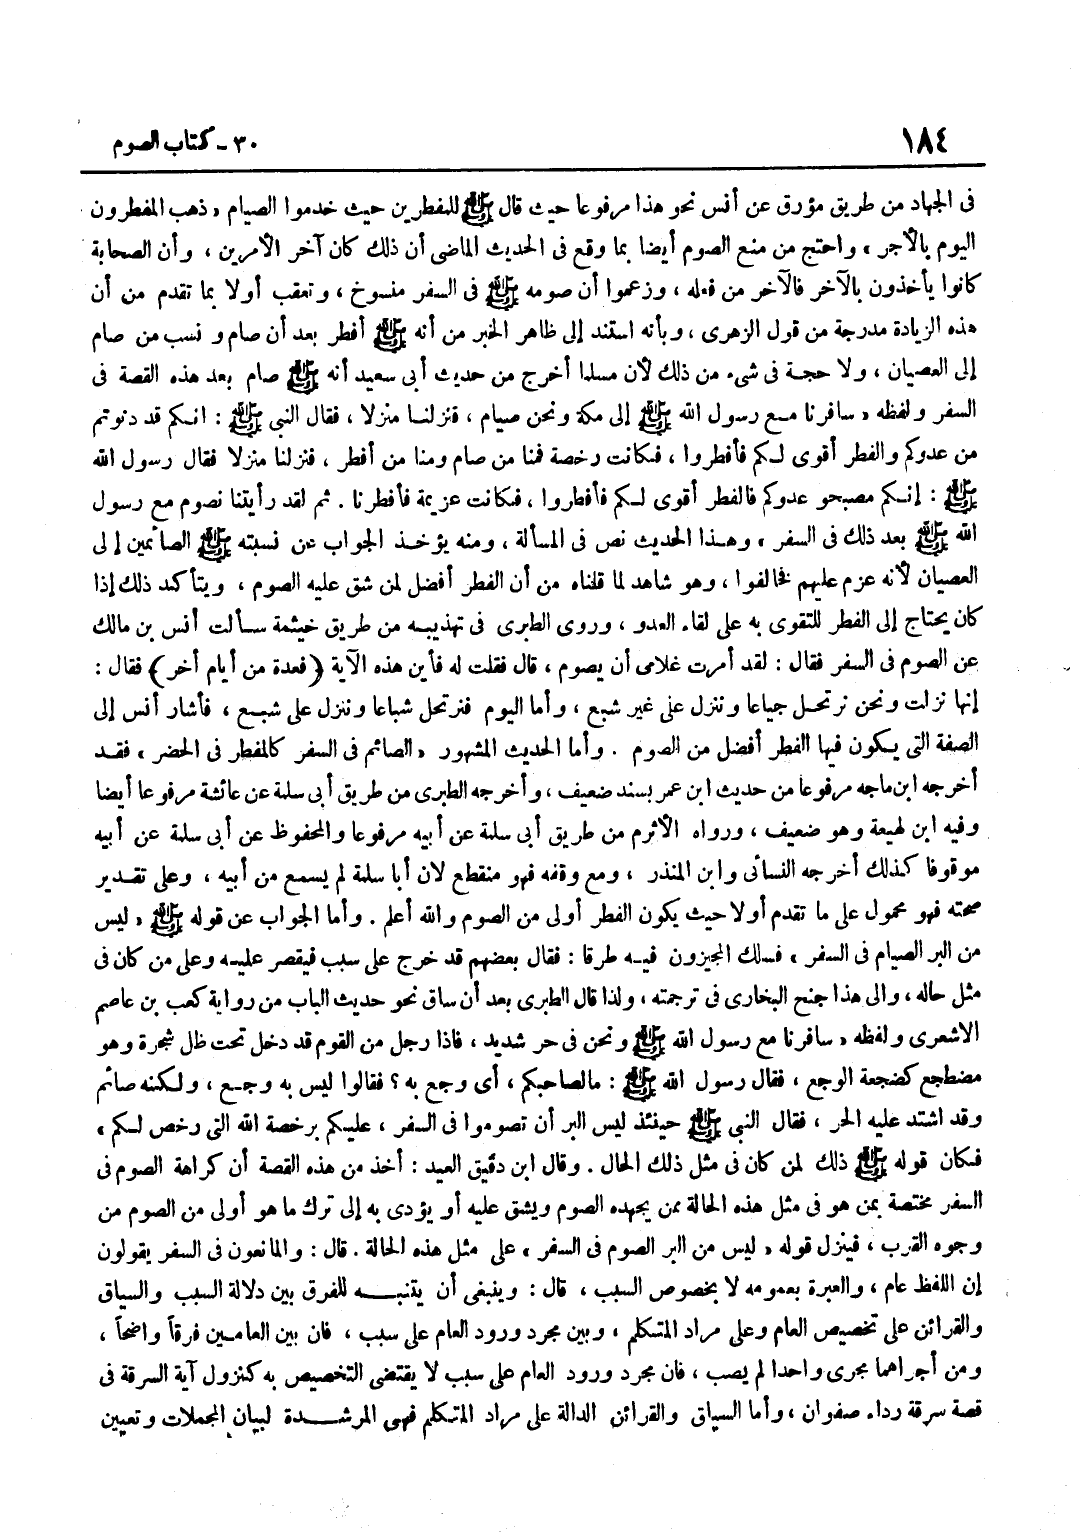 ١٨٤
٣٠ - كتاب الصوم
فى الجهاد من طريق مؤرق عن أنس نحو هذا مرفوعا حيث قال ﷺ للمفطرين حيث خدموا الصيام « ذهب المفطرون
اليوم بالأجر » واحتج من منع الصوم أيضا بما وقع فى الحديث الماضى أن ذلك كان آخر الأمرين ، وأن الصحابة
كانوا يأخذون بالآخر فالآخر من فعله ، وزعموا أن صومه ﷺ فى السفر منسوخ ، وتعقب أولا بما تقدم من أن
هذه الزيادة مدرجة من قول الزهرى ، وبأنه استند إلى ظاهر الخبر من أنه ﷺ أفطر بعد أن صام و نسب من صام
إلى العصيان ، ولا حجة فى شىء من ذلك لأن مسلما أخرج من حديث أبى سعيد أنه ﷺ صام بعد هذه القصة فى
السفر ولفظه « سافرنا مع رسول الله ﷺ إلى مكة ونحن صيام ، فنزلنا منزلا ، فقال النبى ﷺ : انكم قد دنوتم
من عدوكم والفطر أقوى لكم فأفطروا ، فكانت رخصة فمنا من صام ومنا من أفطر ، فنزلنا منزلا فقال رسول الله
ﷺ : إنكم مصبحو عدوكم فالفطر أقوى لكم فأفطروا ، فكانت عزيمة فأفطرنا . ثم لقد رأيتنا نصوم مع رسول
الله ﷺ بعد ذلك فى السفر » وهذا الحديث نص فى المسألة ، ومنه يؤخذ الجواب عن نسبته ﷺ الصائمين إلى
العصيان لأنه عزم عليهم فخالفوا ، وهو شاهد لما قلناه من أن الفطر أفضل لمن شق عليه الصوم ، ويتأكد ذلك إذا
كان يحتاج إلى الفطر للتقوى به على لقاء العدو ، وروى الطبرى فى تهذيبه من طريق خيثمة سألت أنس بن مالك
عن الصوم فى السفر فقال : لقد أمرت غلامى أن يصوم ، قال فقلت له فأين هذه الآية ( فعدة من أيام أخر ) فقال :
إنها نزلت ونحن نرتحل جياعا وننزل على غير شبع ، وأما اليوم فنرتحل شباعا وننزل على شبع ، فأشار أنس إلى
الصفة التى يكون فيها الفطر أفضل من الصوم . وأما الحديث المشهور « الصائم فى السفر كالمفطر فى الحضر » فقد
أخرجه ابن ماجه مرفوعا من حديث ابن عمر بسند ضعيف ، وأخرجه الطبرى من طريق أبى سلمة عن عائشة مرفوعا أيضا
وفيه ابن لهيعة وهو ضعيف ، ورواه الأثرم من طريق أبى سلمة عن أبيه مرفوعا والمحفوظ عن أبى سلمة عن أبيه
موقوفا كذلك أخرجه النسائى وابن المنذر ، ومع وقفه فهو منقطع لان أبا سلمة لم يسمع من أبيه ، وعلى تقدير
صحته فهو محمول على ما تقدم أولا حيث يكون الفطر أولى من الصوم والله أعلم . وأما الجواب عن قوله ﷺ « ليس
من البر الصيام فى السفر » فسلك المجيزون فيه طرقا : فقال بعضهم قد خرج على سبب فيقصر عليه وعلى من كان فى
مثل حاله ، والى هذا جنح البخارى فى ترجمته ، ولذا قال الطبرى بعد أن ساق نحو حديث الباب من رواية كعب بن عاصم
الاشعرى ولفظه « سافرنا مع رسول الله ﷺ ونحن فى حر شديد ، فاذا رجل من القوم قد دخل تحت ظل شجرة وهو
مضطجع كضجعة الوجع ، فقال رسول الله ﷺ : مالصاحبكم ، أى وجع به ؟ فقالوا ليس به وجع ، ولكنه صائم
وقد اشتد عليه الحر ، فقال النبى ﷺ حينئذ ليس البر أن تصوموا فى السفر ، عليكم برخصة الله التى رخص لكم »
فكان قوله ﷺ ذلك لمن كان فى مثل ذلك الحال . وقال ابن دقيق العيد : أخذ من هذه القصة أن كراهة الصوم فى
السفر مختصة بمن هو فى مثل هذه الحالة ممن يجهده الصوم ويشق عليه أو يؤدى به إلى ترك ما هو أولى من الصوم من
وجوه القرب ، فينزل قوله « ليس من البر الصوم فى السفر » على مثل هذه الحالة . قال : والمانعون فى السفر يقولون
إن اللفظ عام ، والعبرة بعمومه لا بخصوص السبب ، قال : وينبغى أن يتنبه للفرق بين دلالة السبب والسياق
والقرائن على تخصيص العام وعلى مراد المتكلم ، وبين مجرد ورود العام على سبب ، فان بين العامين فرقاً واضحاً ،
ومن أجراهما مجرى واحدا لم يصب ، فان مجرد ورود العام على سبب لا يقتضى التخصيص به كنزول آية السرقة فى
قصة سرقة رداء صفوان ، وأما السياق والقرائن الدالة على مراد المتكلم فهى المرشدة لبيان المجملات وتعيين